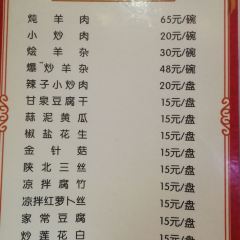 炖羊肉 65元/碗
小炒肉 20元/碗
烩羊杂 30元/碗
爆炒羊杂 48元/碗
辣子小炒肉 20元/盘
甘泉豆腐干 15元/盘
蒜泥黄瓜 15元/盘
椒盐花生 15元/盘
金针菇 15元/盘
陕北三丝 15元/盘
凉拌腐竹 15元/盘
凉拌红萝卜丝 15元/盘
家常豆腐 15元/盘
炒莲花白 15元/盘